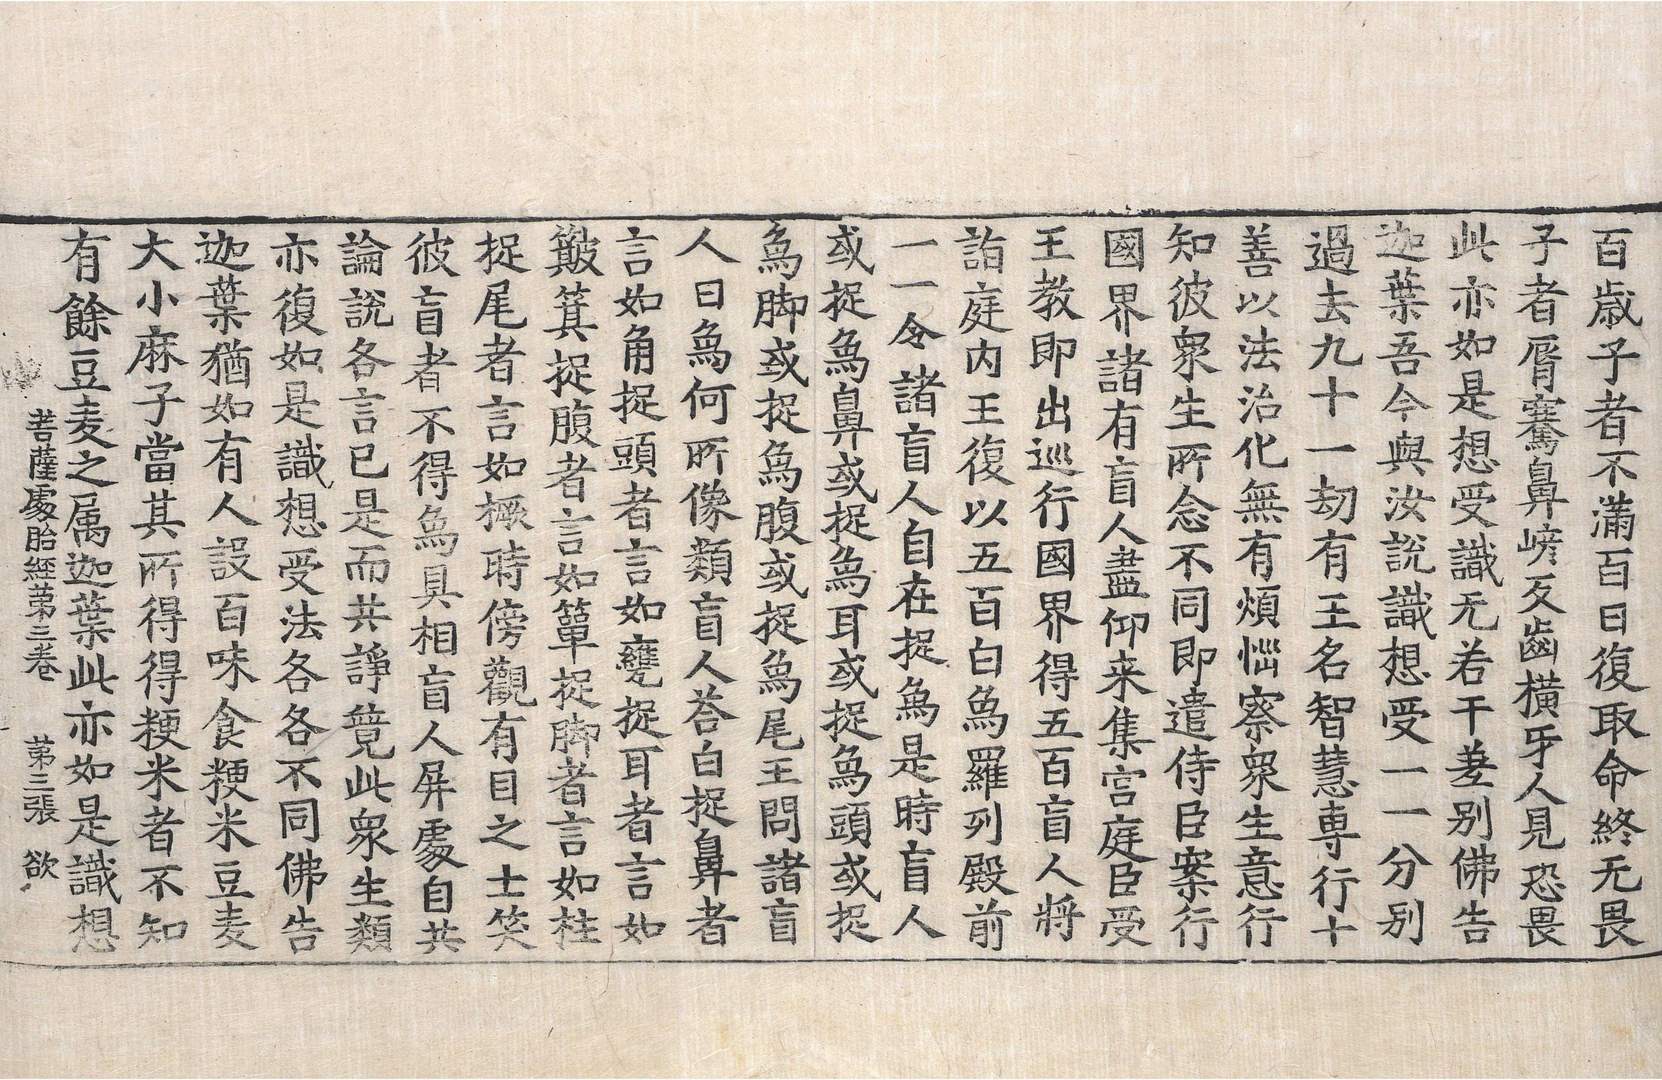 百歲子者不滿百日復取命終无畏
子者脣騫鼻㟧反齒橫牙人見恐畏
此亦如是想受識无若干差别佛告
迦葉吾今與汝說識想受一一分别
過去九十一劫有王名智慧専行十
善以法治化無有煩惱察衆生意行
知彼衆生所念不同即遣侍臣案行
國界諸有盲人盡仰来集宫庭臣受
王教即出巡行國界得五百盲人將
詣庭內王復以五百白烏羅列殿前
一一令諸盲人自在捉烏是時盲人
或捉烏鼻或捉烏耳或捉烏頭或捉
烏脚或捉烏腹或捉烏尾王問諸盲
人曰烏何所像類盲人荅白捉鼻者
言如角捉頭者言如甕捉耳者言如
簸箕捉腹者言如簞捉脚者言如柱
捉尾者言如橛時傍觀有目之士笑
彼盲者不得烏具相盲人屏處自共
論說各言已是而共諍竟此衆生類
亦復如是識想受法各各不同佛告
迦葉猶如有人設百味食粳米豆麦
大小麻子當其所得得粳米者不知
有餘豆麦之属迦葉此亦如是識想
菩薩處胎經第三卷 第三張 欲